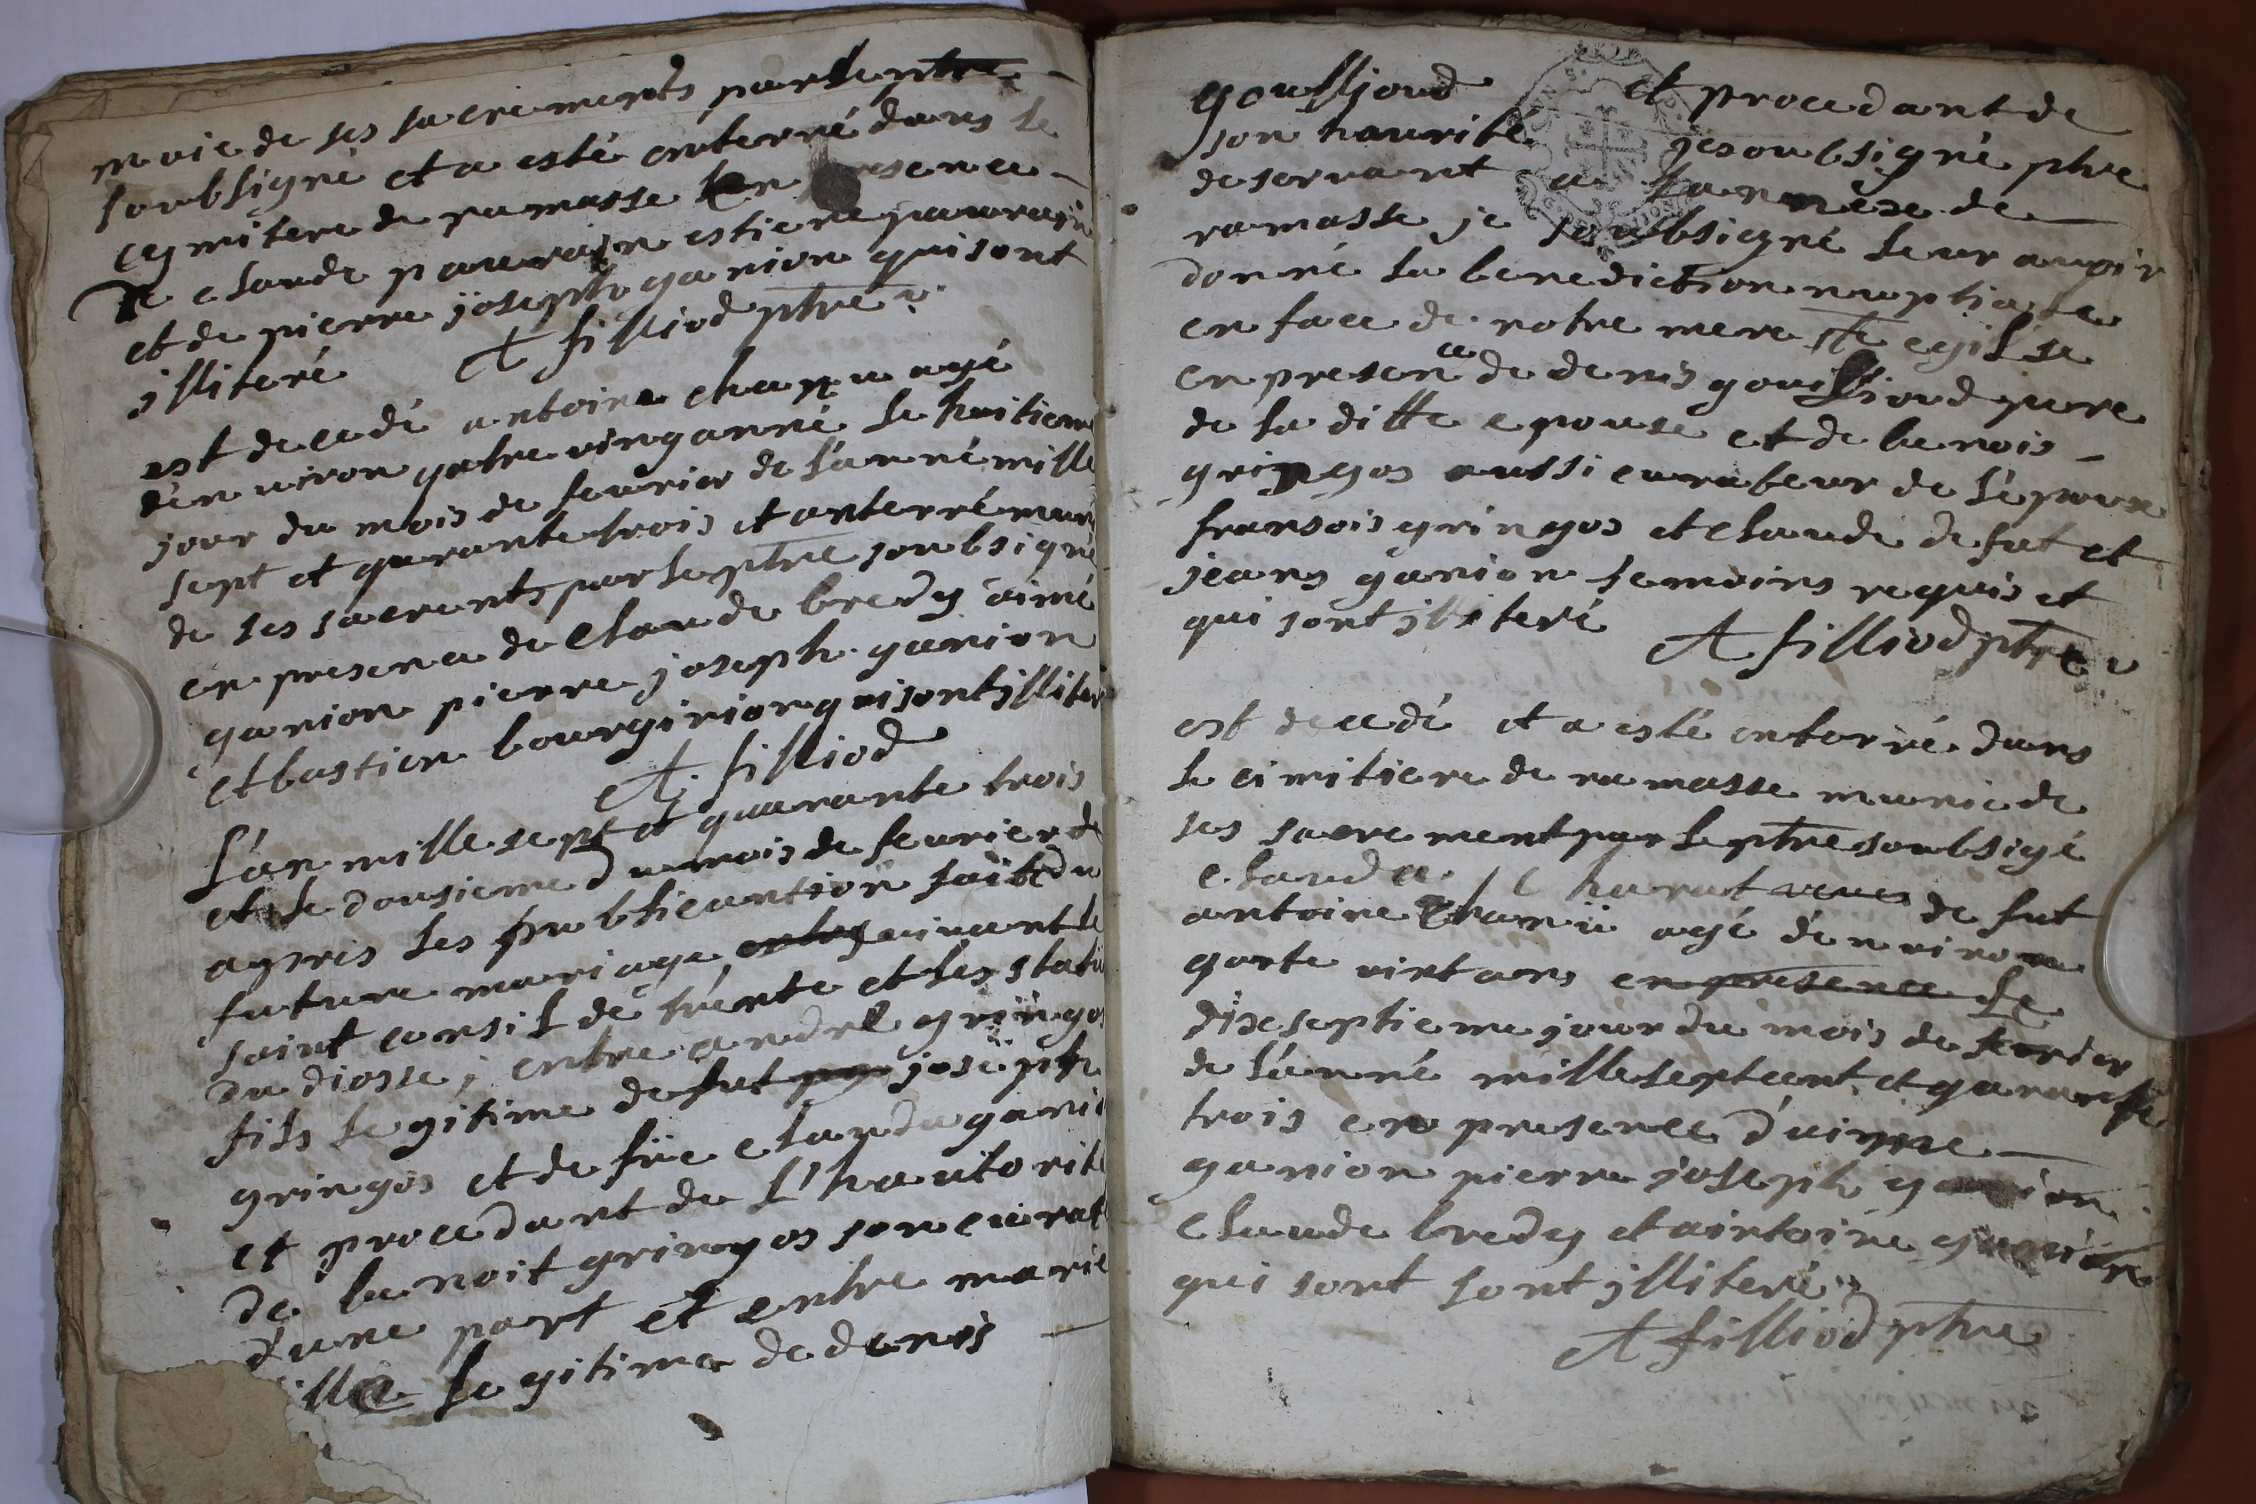 muvie de ses sacrements par le ptre
soubsigné et a esté enterré dans le
cymitere de ramasse en presence
de claude pauraín estiene pauraín
et de pierre joseph ganion qui sont
jlliteré A filliod ptre
est decedé antoine chanu agé
d'enuiron quatre uinganné le huitieme
jour du mois de feurier de l'anné mille
sept et quarante trois et anterré muni
de ses sacrents par le ptre soubsigné
en presence de claude bredy aimé
ganion pierre joseph ganion
et bastien bourginion qui sont jlliteré
A. filliod
L'an mille sept et quarante trois
et le dousieme du mois de feurier
apres les publicantion faite du
future mariage suiuant le
saint consil de trénte et les statu
du diosse, entre andre gringos
fils legitime de fut joseph
gringos et de füe clauda ganio
et procedant de l'hautorité
de benoit gringos son curat
d'une part et entre marie
fille legitime de denis
goullioud et procedant de
son haurité je soubsigné ptre
deseruant a lannexe de
ramasse je soubsigné leur auoir
donné la benediction nuptiale
en face de notre mere ste eglise
en presence de denis goullioud pere
de la ditte epouse et de benois
gringos aussi curateur de l'epoux
fransois gringos et claude defut et
jeans ganion temoins requis et
qui sont jlliteré A filliod ptre
est decedé et a esté enterré dans
le cimitiere de ramasse munie de
ses sacrement par le ptre soubsigé
clauda charut de fut
antoine chanü agé d'enuiron
quate vint ans en presence le
dixseptieme jour du mois de feurier
de l'anné mille septcent et quarante
trois en presence d'aimme
ganion pierre joseph ganion
claude bredy et aintoine ganion
qui sont sont jlliteré
A filliod ptre